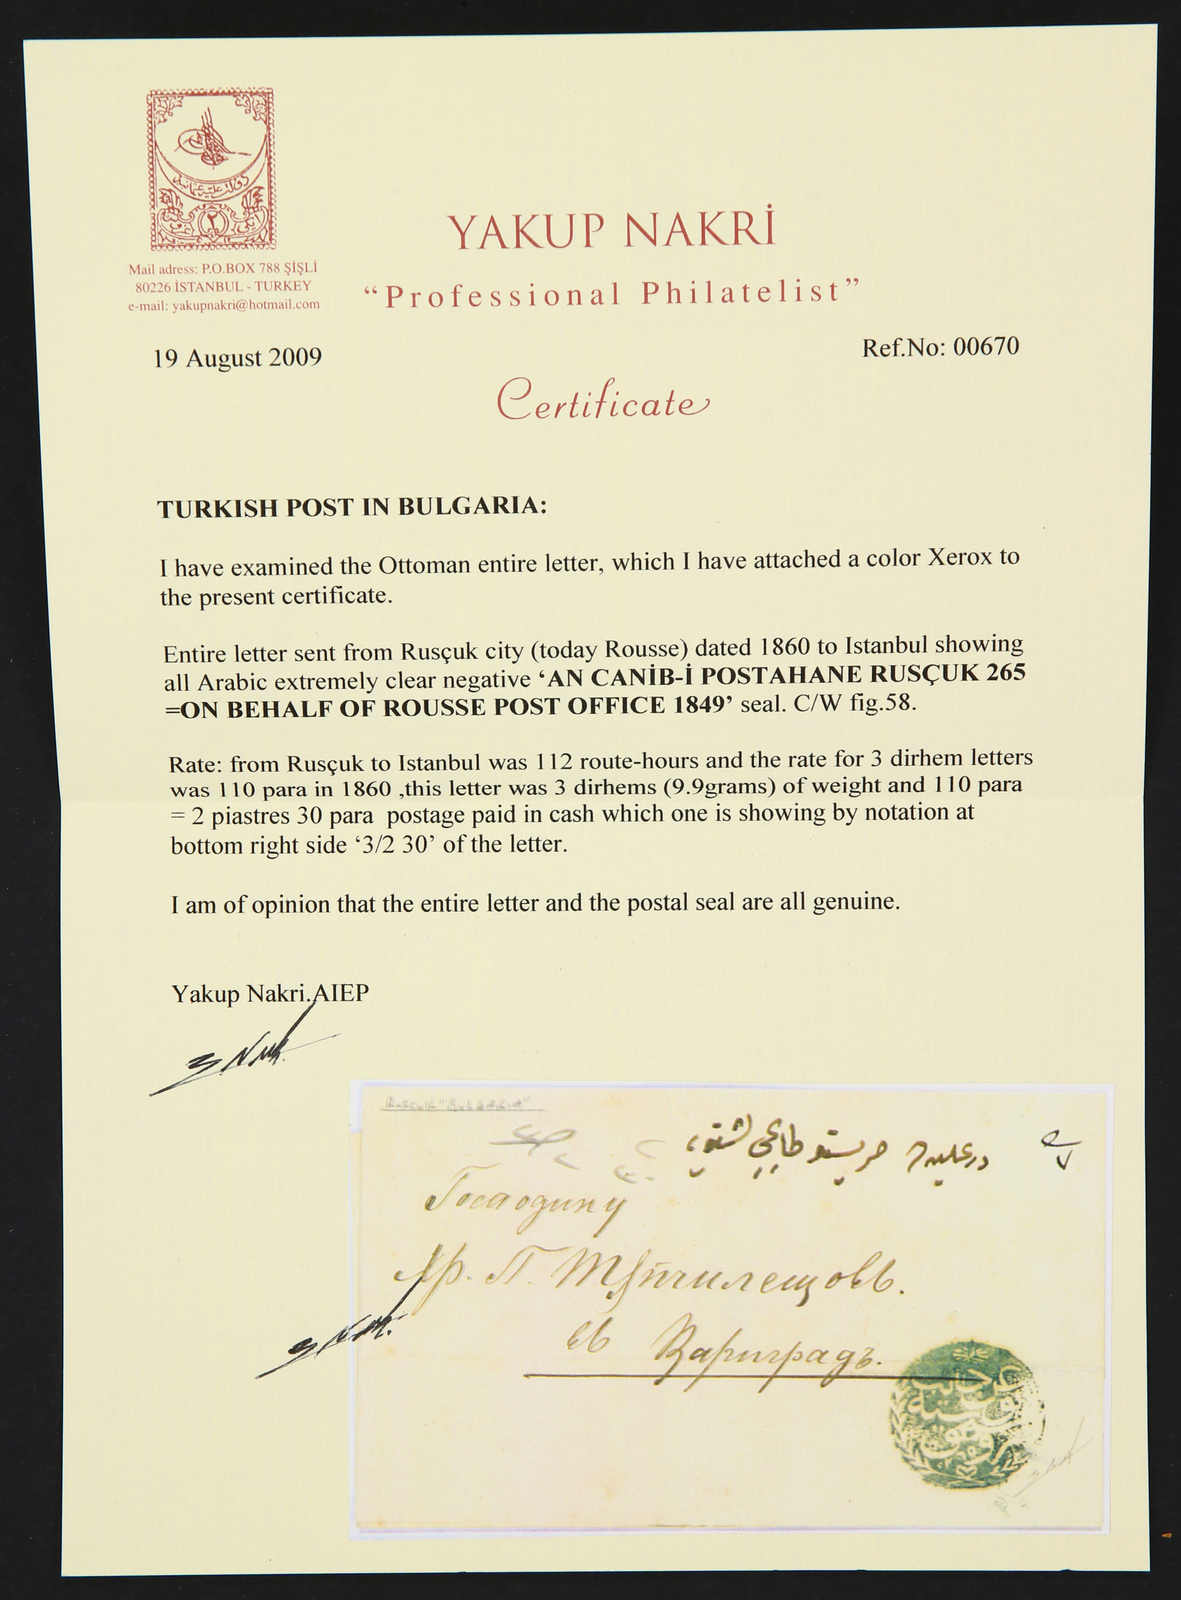 دولت علیه عثمانیه
٢
Mail adress: P.O.BOX 788 ŞİŞLİ
80226 İSTANBUL - TURKEY
e-mail: yakupnakri@hotmail.com
YAKUP NAKRİ
“Professional Philatelist”
19 August 2009
Ref.No: 00670
Certificate
TURKISH POST IN BULGARIA:
I have examined the Ottoman entire letter, which I have attached a color Xerox to
the present certificate.
Entire letter sent from Rusçuk city (today Rousse) dated 1860 to Istanbul showing
all Arabic extremely clear negative ‘AN CANİB-İ POSTAHANE RUSÇUK 265
=ON BEHALF OF ROUSSE POST OFFICE 1849’ seal. C/W fig.58.
Rate: from Rusçuk to Istanbul was 112 route-hours and the rate for 3 dirhem letters
was 110 para in 1860 ,this letter was 3 dirhems (9.9grams) of weight and 110 para
= 2 piastres 30 para postage paid in cash which one is showing by notation at
bottom right side ‘3/2 30’ of the letter.
I am of opinion that the entire letter and the postal seal are all genuine.
Yakup Nakri.AIEP
Rusçuk "Bulgaria"
در علیه
Господину
Хр. П.
въ Цариградъ.